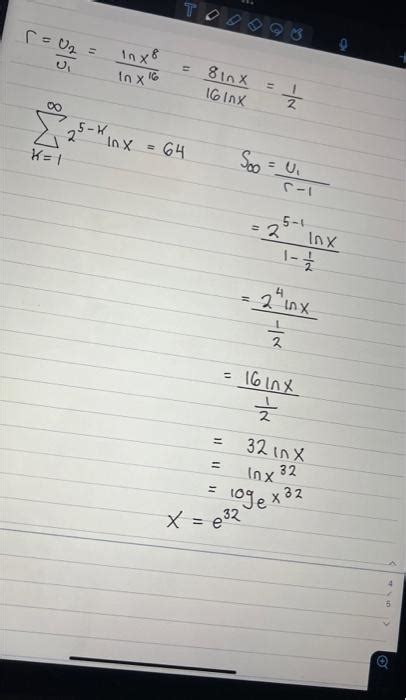 r = u₂/u₁ = ln x⁸/ln x¹⁶ = 8 ln x/16 ln x = 1/2
∞
∑ 2⁵⁻ᴷ ln x = 64
K=1
S∞ = u₁/r-1
= 2⁵⁻¹ ln x/1 - 1/2
= 2⁴ ln x/1/2
= 16 ln x/1/2
= 32 ln x
= ln x³²
= logₑ x³²
x = e³²
4
5